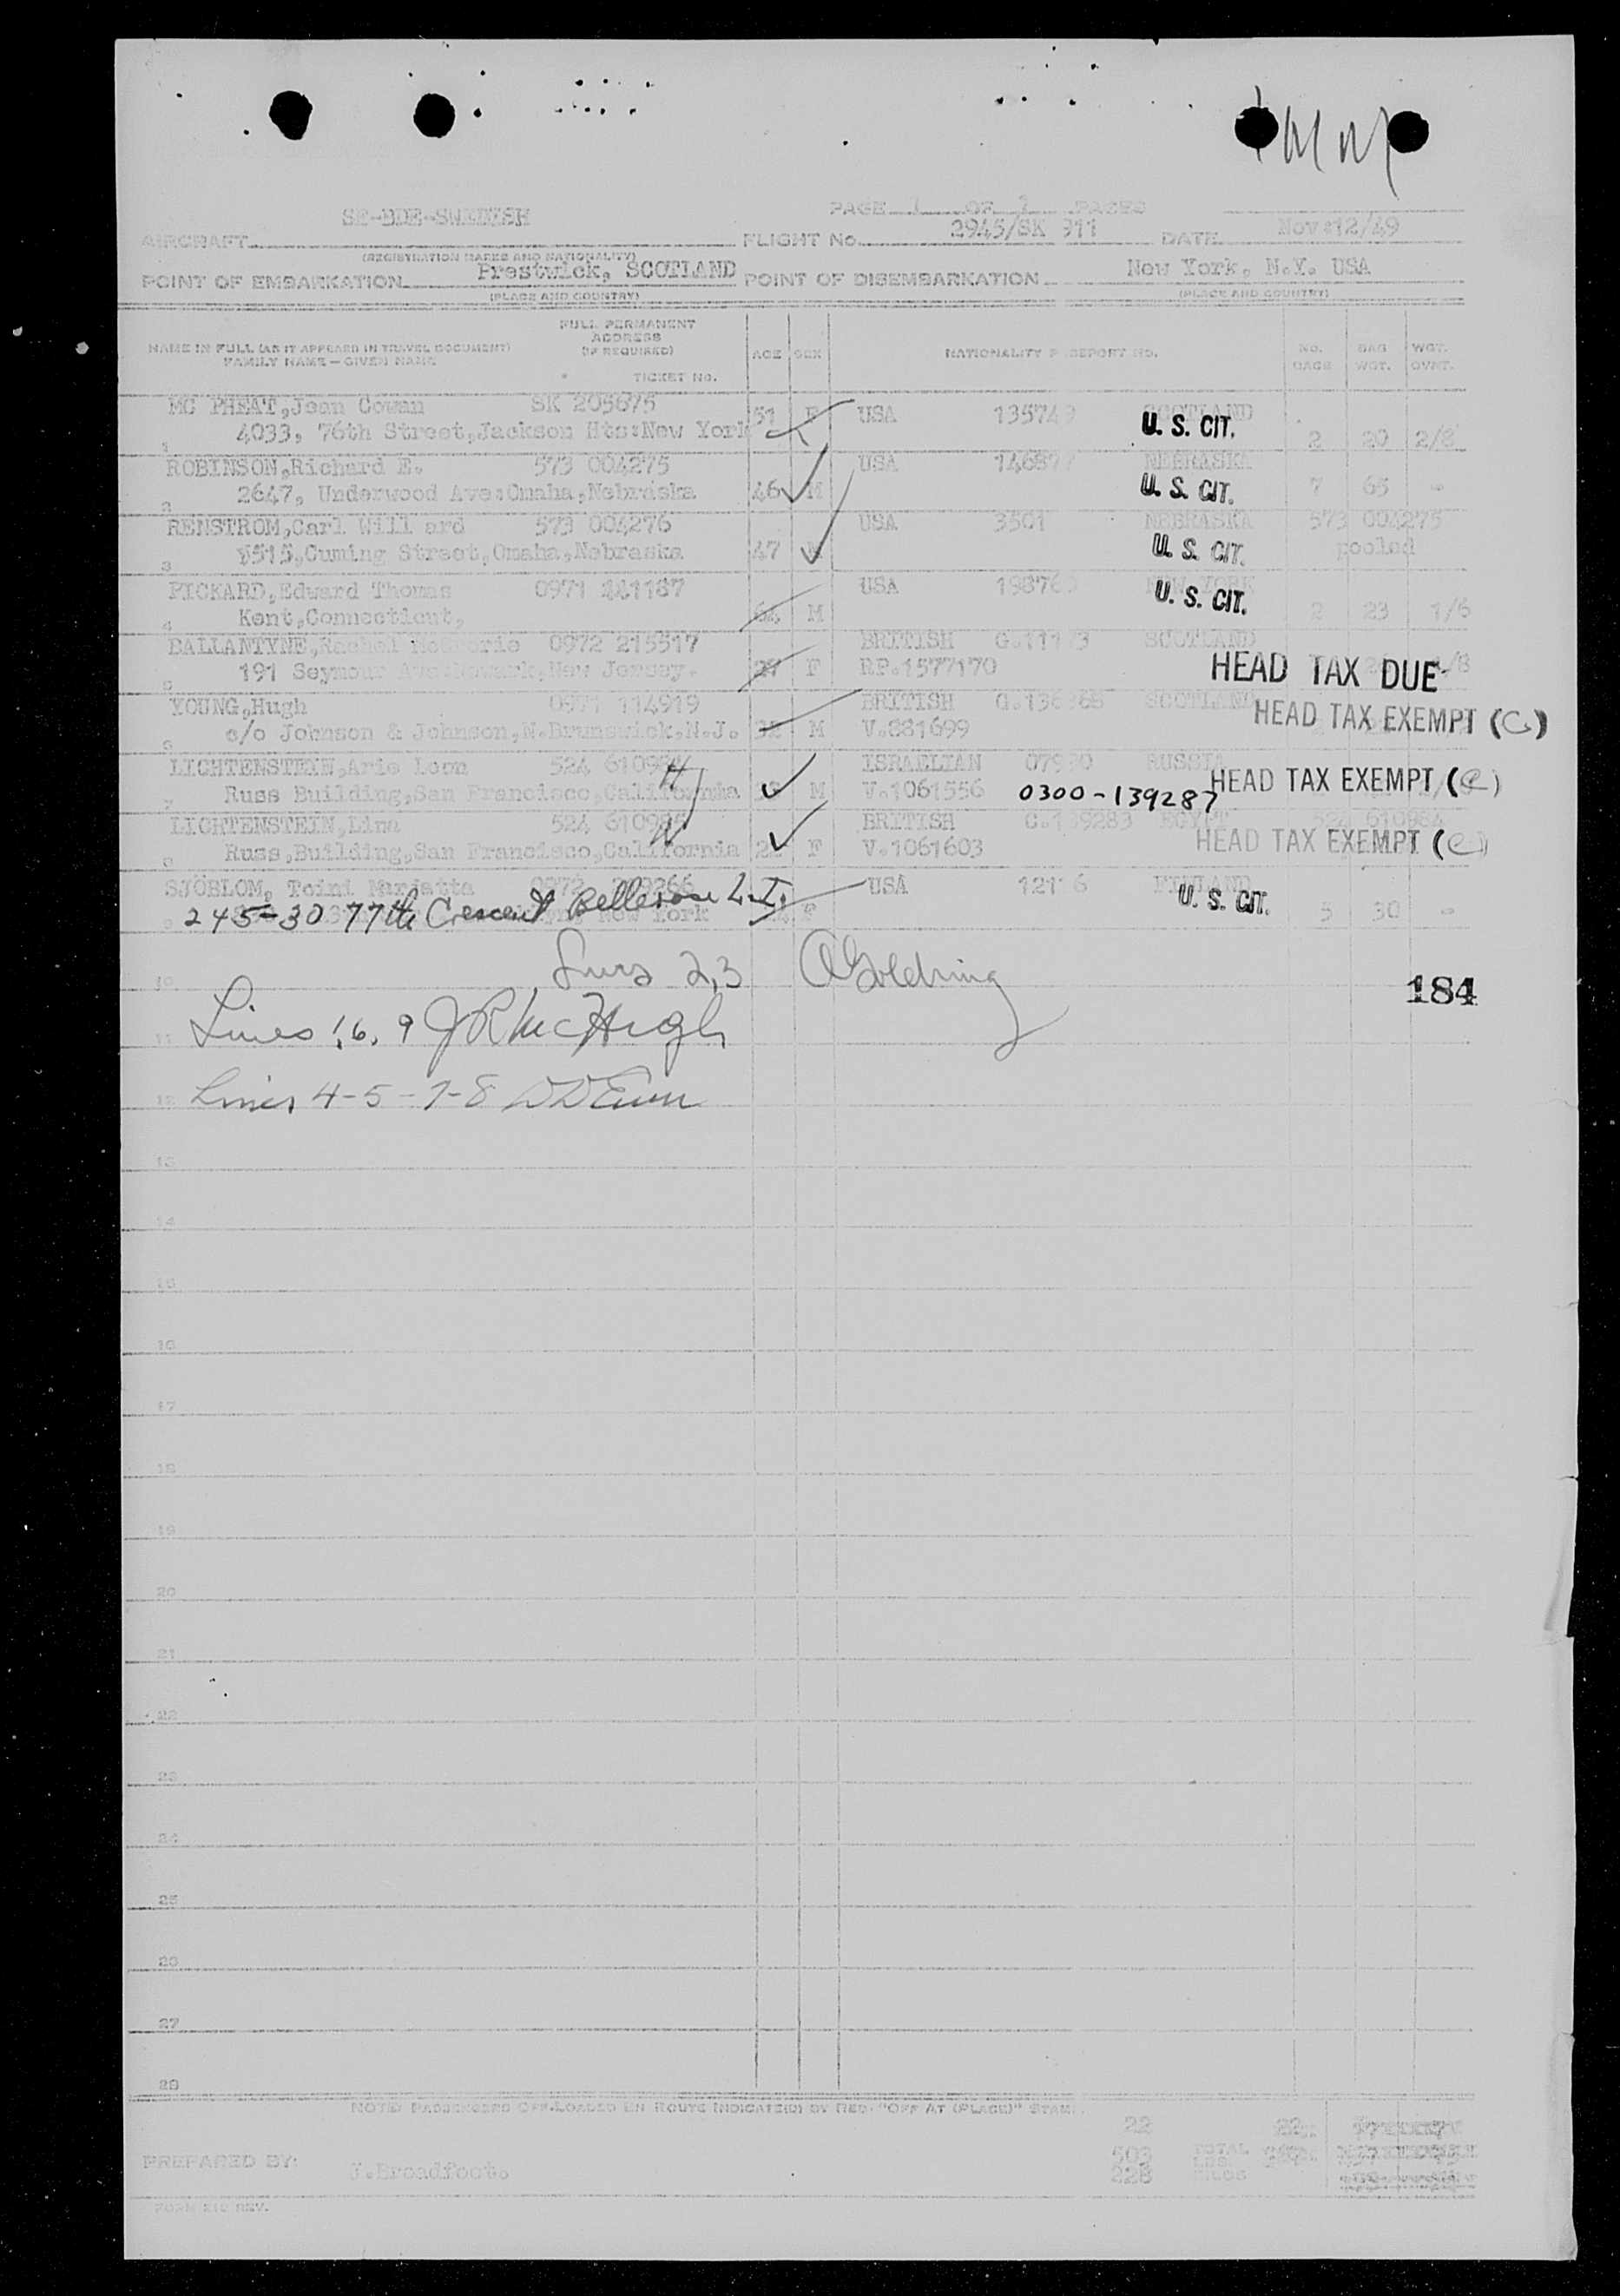 SE-BDE-SWEDISH
PAGE 1 OF 1 PAGES
AIRCRAFT
FLIGHT No. 2945/SK 911
DATE Nov:12/49
(REGISTRATION MARKS AND NATIONALITY)
POINT OF EMBARKATION Prestwick, SCOTLAND
POINT OF DISEMBARKATION New York, N.Y. USA
(PLACE AND COUNTRY)
(PLACE AND COUNTRY)
NAME IN FULL (AS IT APPEARS IN TRAVEL DOCUMENT)
FAMILY NAME – GIVEN NAME
FULL PERMANENT
ADDRESS
(IF REQUIRED)
TICKET No.
AGE SEX
No.
BAGS
BAG
WGT.
WGT.
OVWT.
MC PHEAT,Jean Cowan SK 205675 51 F USA SCOTLAND U. S. CIT.
1 4033, 76th Street,Jackson Hts:New York 2 20 2/8
ROBINSON,Richard E. 573 004275 USA NEBRASKA
2 2647, Underwood Ave:Omaha,Nebraska 46 M U. S. CIT. 7 65 -
RENSTROM,Carl Will ard 573 004276 USA 3501 NEBRASKA 573 004275
3 Cuming Street,Omaha,Nebraska 47 U. S. CIT. pooled
PICKARD,Edward Thomas USA NEW YORK U. S. CIT.
4 Kent,Connecticut, 64 M 2 23 1/6
BALLANTYNE,Rachel 0972 215517 BRITISH SCOTLAND
5 191 Seymour Ave:Newark,New Jersey. F RP.1577170 HEAD TAX DUE
YOUNG,Hugh 0971 114919 BRITISH SCOTLAND HEAD TAX EXEMPT (C)
6 c/o Johnson & Johnson,N.Brunswick,N.J. M V.881699
LICHTENSTEIN,Arie Leon 524 610984 H ISRAELIAN RUSSIA
7 Russ Building,San Francisco,California M V.1061556 0300-139287 HEAD TAX EXEMPT (C)
LICHTENSTEIN,Lina 524 610985 W BRITISH EGYPT 524 610984
8 Russ,Building,San Francisco,California F V.1061603 HEAD TAX EXEMPT (C)
SJÖBLOM, Toini Marjatta USA FINLAND U. S. CIT.
9 245-30 77th Crescent Bellerose L.I. F 5 30 -
10 Lines 2,3 A Goldring
184
11 Lines 1,6,9 J R McHugh
12 Lines 4-5-7-8
13
14
15
16
17
18
19
20
21
22
23
24
25
26
27
28
NOTE: PASSENGERS OFF-LOADED EN ROUTE INDICATE(D) BY RED "OFF AT (PLACE)" STAMP
22 22
503 TOTAL
LBS.
228 KILOS
PREPARED BY: J.Broadfoot.